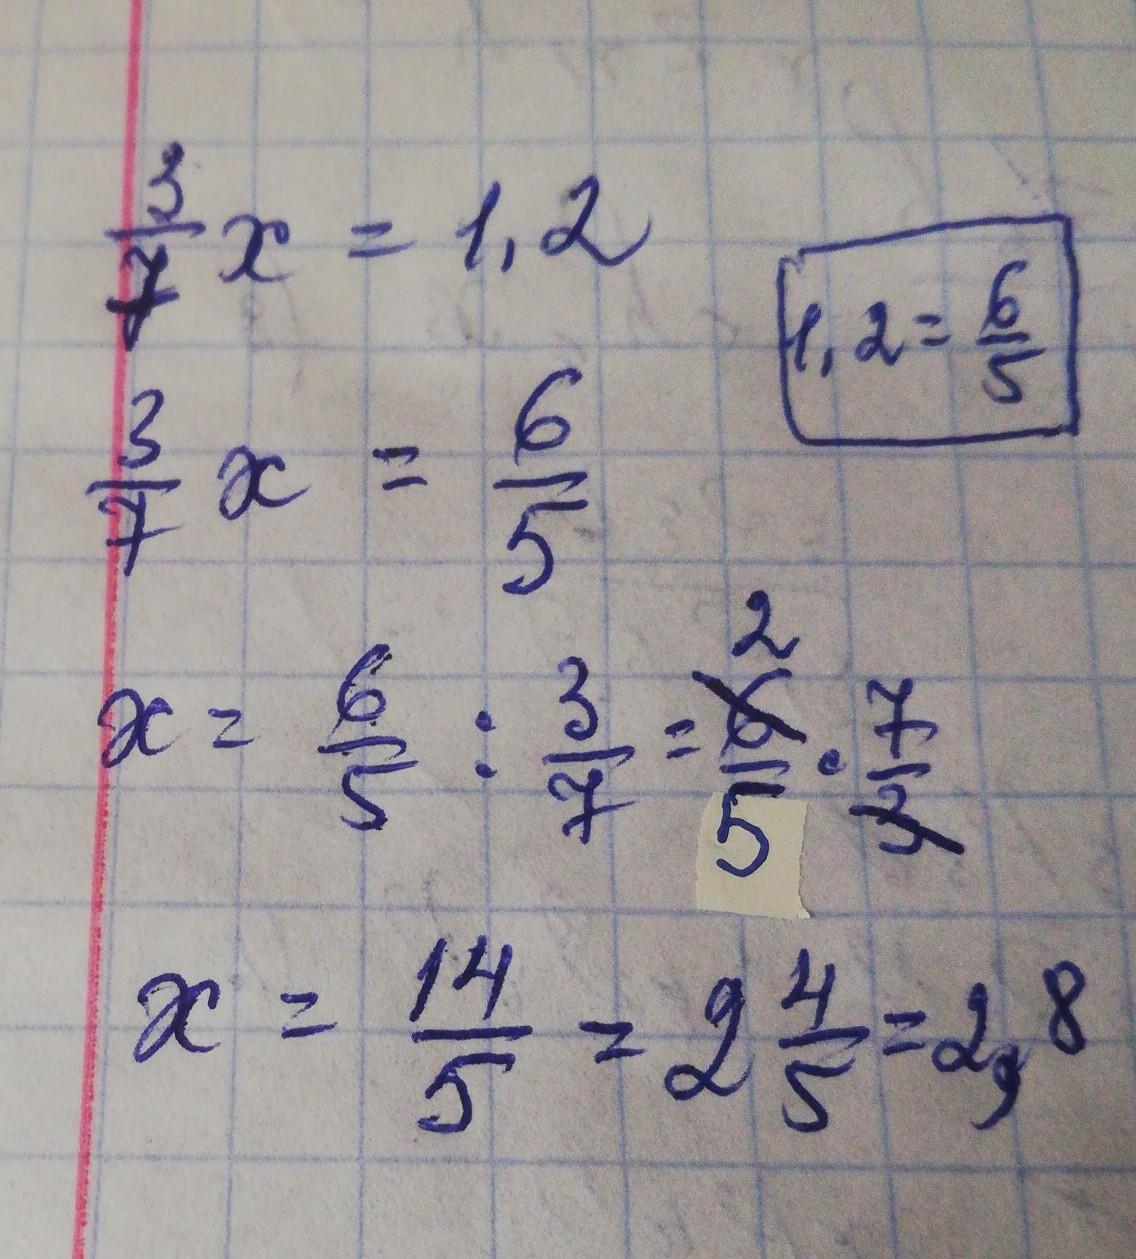 3/7 x = 1,2
1,2 = 6/5
3/7 x = 6/5
x = 6/5 : 3/7 = 2 6/5 · 7/3
x = 14/5 = 2 4/5 = 2,8